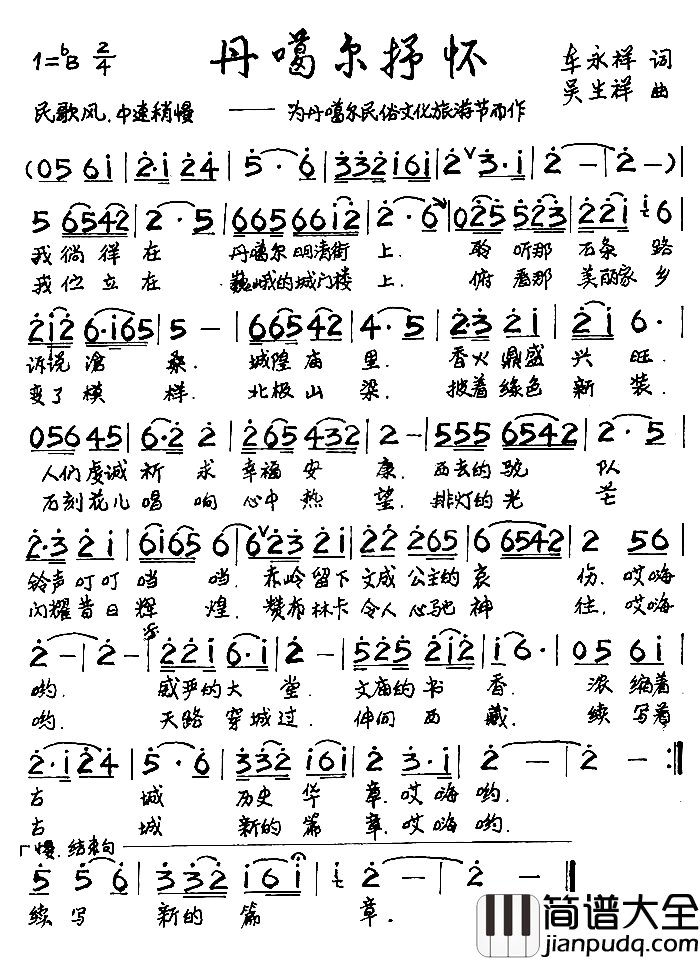 1=♭B 2/4 丹噶尔抒怀 车永样 词
吴生祥 曲
民歌风.中速稍慢 —— 为丹噶尔民俗文化旅游节而作
(05 6i | 2·i 24 | 5 · 6 | 332 i6i | 2 3·i | 2 — | 2 — )
5 6542 | 2 · 5 | 665 66i2 | 2 · 6 | 025 523 | 22i 6
我徜徉在 丹噶尔明清街 上. 聆听那 石条 路
我伫立在 巍峨的城门楼 上. 俯看那 美丽家 乡
2i2 6·i65 | 5 — | 66542 | 4 · 5 | 2·3 2i | 2i 6·
诉说 沧 桑. 城隍 庙 里. 香火 鼎盛 兴 旺.
变了 模 样. 北极 山 梁. 披着 绿色 新 装.
05645 | 6·2 2 | 265 432 | 2 — | 555 6542 | 2 · 5
人们 虔诚 祈 求 幸福 安 康. 西去的 驼 队
石刻 花儿 唱 响 心中 热 望. 排灯的 光 芒
2·3 2i | 6i65 6 | 6 23 2i | 22 265 | 6 6542 | 2 56
铃声 叮叮 当 当. 赤岭 留下 文成 公主的 哀 伤. 哎嗨
闪耀 昔日 辉 煌. 赞布 林卡 令人 心驰 神 往. 哎嗨
2 — | 2 — | 222i 6·i | 2 — | 525 2i2 | i 6· | 05 6i
哟. 威严的 大 堂. 文庙的 书 香. 浓 缩着
哟. 天路 穿 城过. 伸向 西 藏. 续 写着
2·i 24 | 5 · 6 | 332 i6i | 2 3·i | 2 — | 2 — :‖
古 城 历史 华 章. 哎嗨 哟.
古 城 新的 篇 章. 哎嗨 哟.
慢.结束句
5 5 6 | 332 i6i | 2 — | 2 — ‖
续 写 新的 篇 章.
简谱大全
jianpudq.com